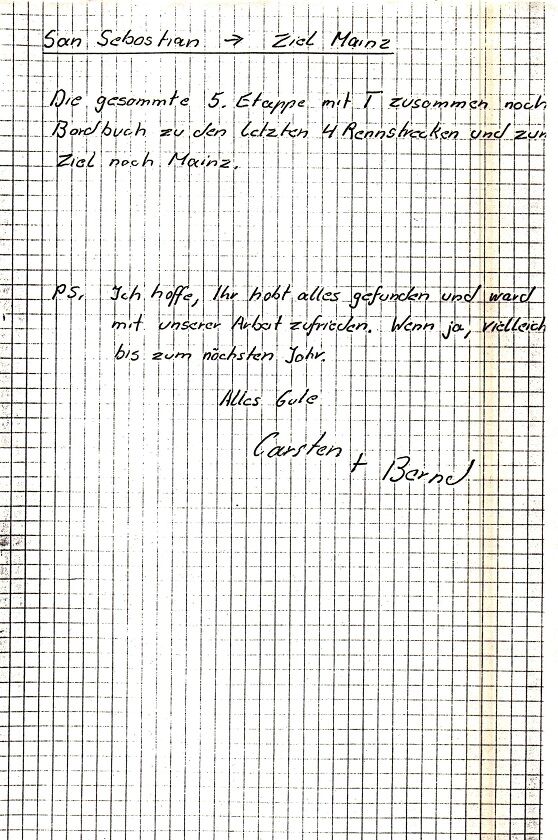 San Sebastian → Ziel Mainz
Die gesammte 5. Etappe mit T zusammen nach
Bordbuch zu den letzten 4 Rennstrecken und zum
Ziel nach Mainz.
PS. Ich hoffe, Ihr habt alles gefunden und ward
mit unserer Arbeit zufrieden. Wenn ja, vielleich
bis zum nächsten Jahr.
Alles Gute
Carsten + Bernd